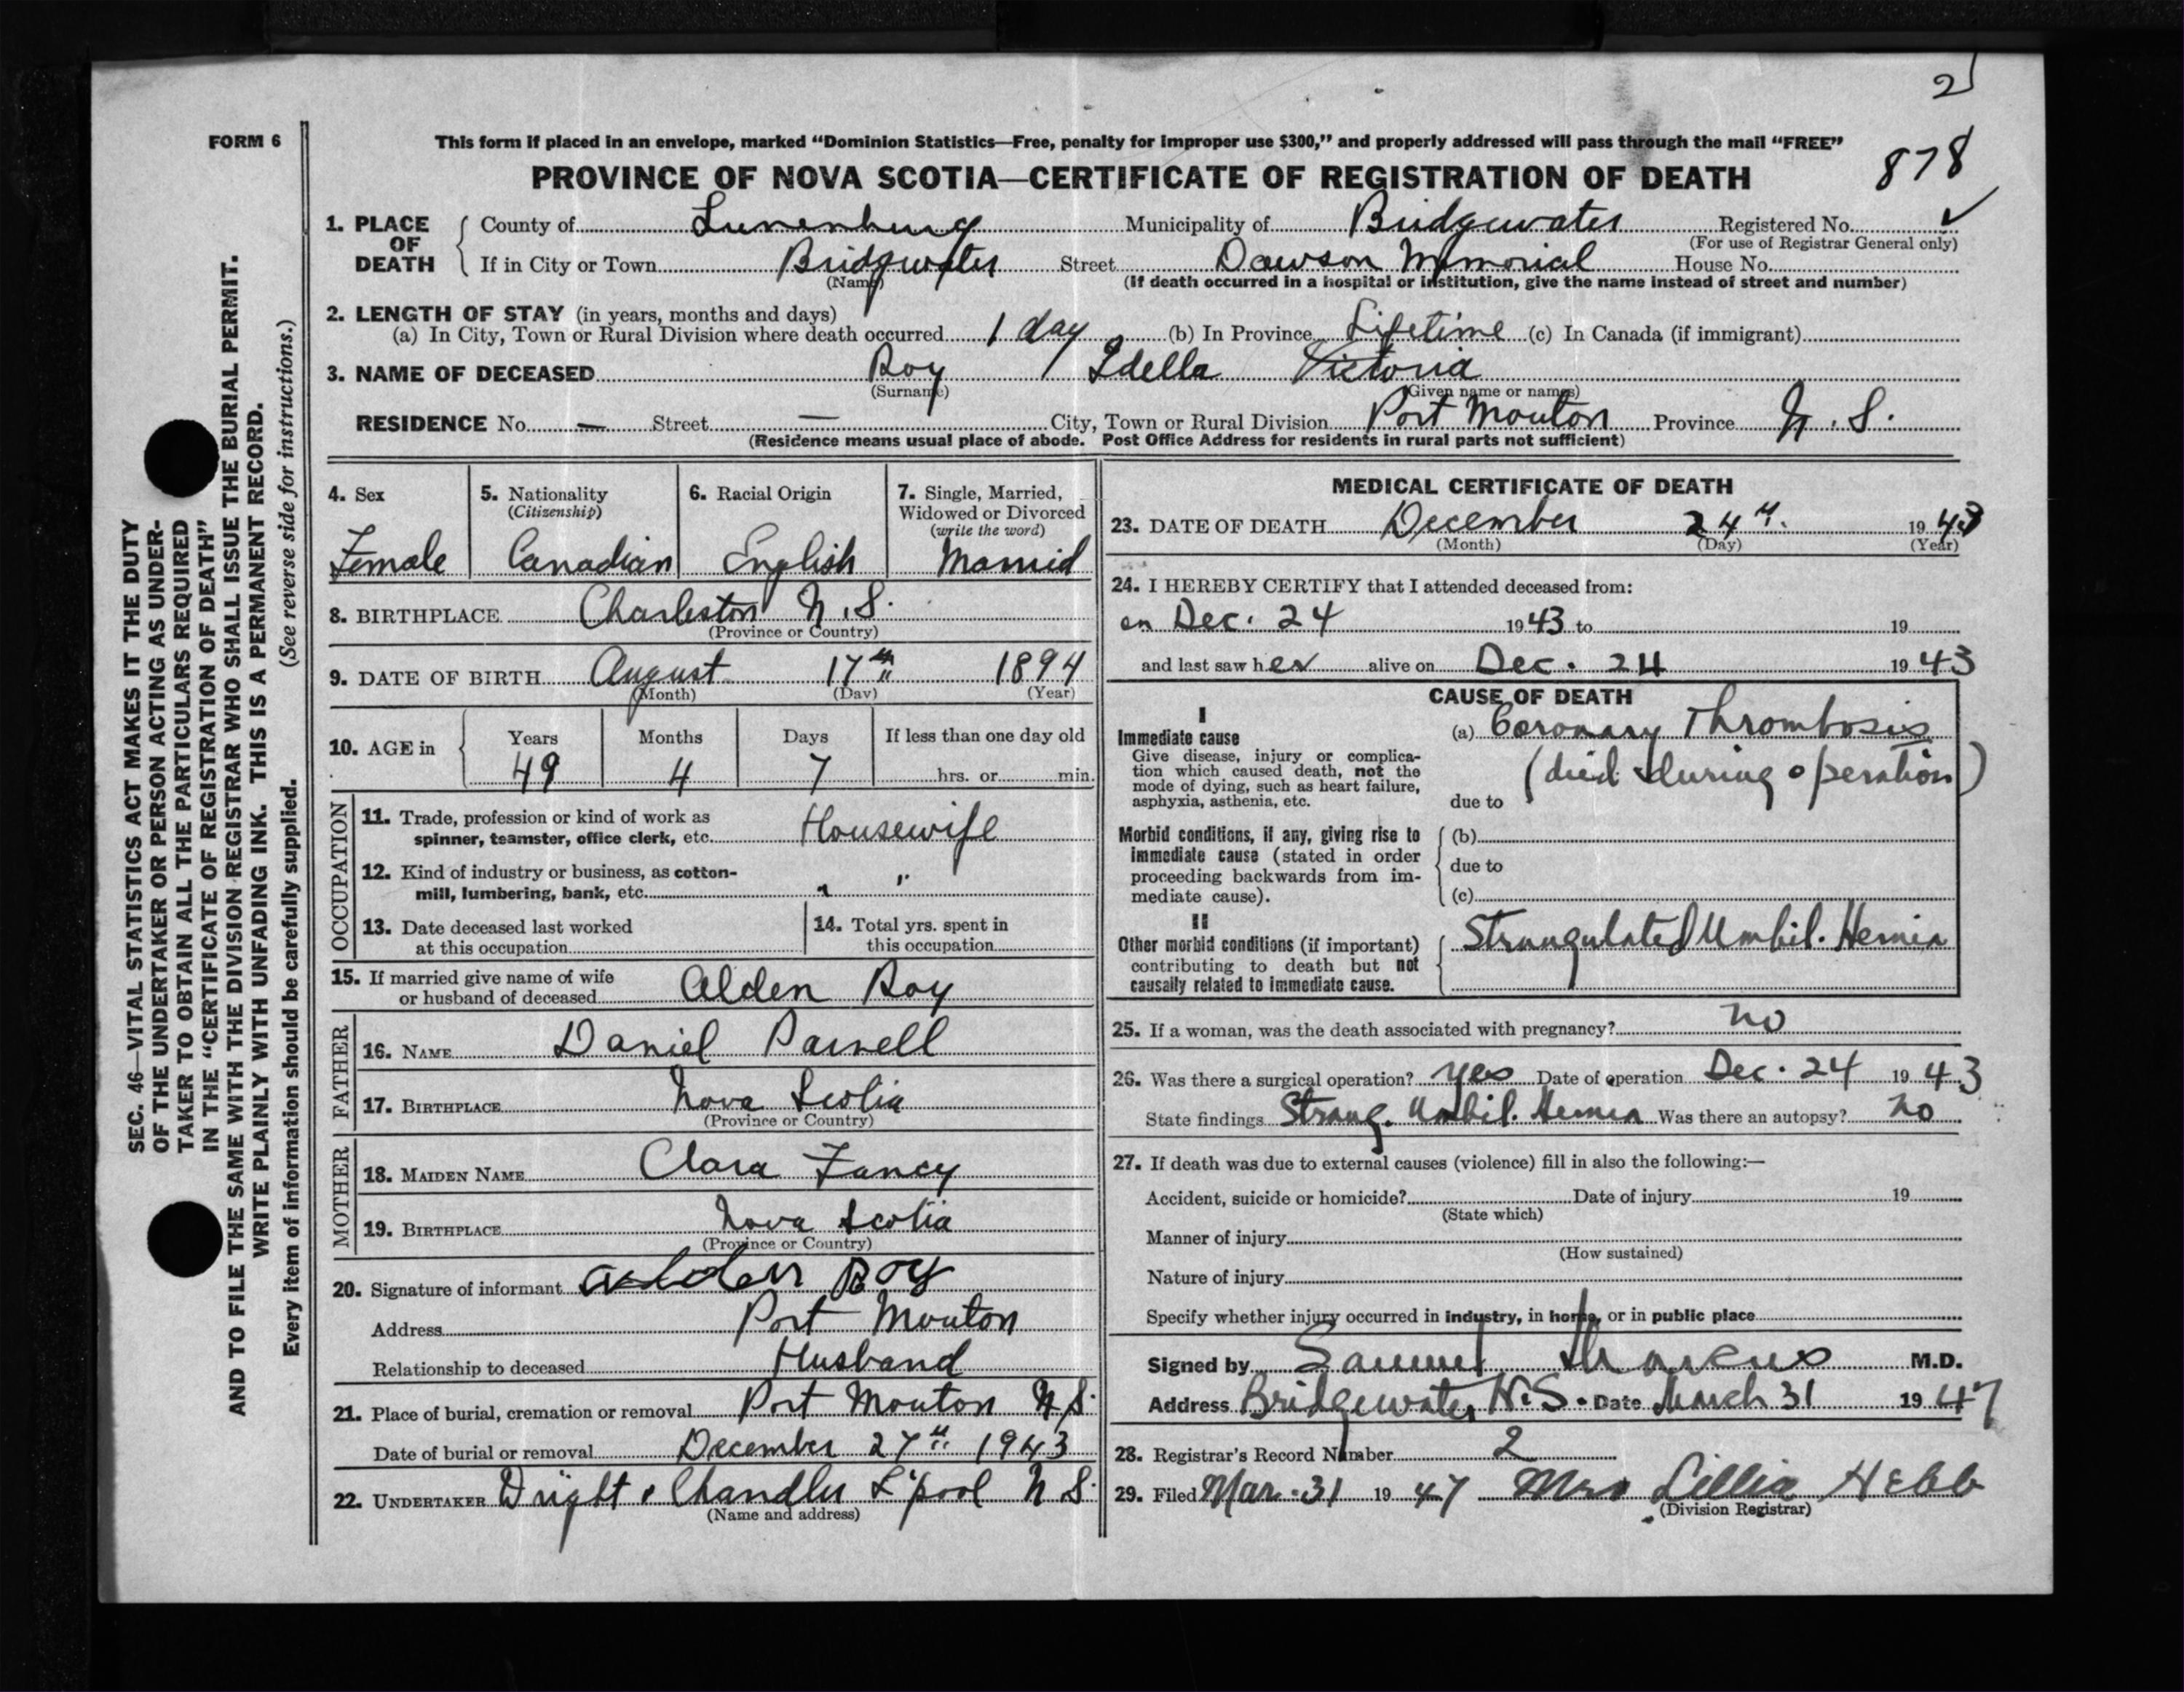 2
FORM 6
This form if placed in an envelope, marked "Dominion Statistics—Free, penalty for improper use $300," and properly addressed will pass through the mail "FREE"
878
PROVINCE OF NOVA SCOTIA—CERTIFICATE OF REGISTRATION OF DEATH
1. PLACE OF DEATH
County of Lunenburg Municipality of Bridgewater Registered No. ✓
(For use of Registrar General only)
If in City or Town Bridgwater Street Dawson Memorial House No.
(Name) (If death occurred in a hospital or institution, give the name instead of street and number)
2. LENGTH OF STAY (in years, months and days)
(a) In City, Town or Rural Division where death occurred 1 day (b) In Province Lifetime (c) In Canada (if immigrant)
3. NAME OF DECEASED Roy Idella Victoria
(Surname) (Given name or names)
RESIDENCE No. — Street — City, Town or Rural Division Port Mouton Province N.S.
(Residence means usual place of abode. Post Office Address for residents in rural parts not sufficient)
SEC. 46—VITAL STATISTICS ACT MAKES IT THE DUTY
OF THE UNDERTAKER OR PERSON ACTING AS UNDER-
TAKER TO OBTAIN ALL THE PARTICULARS REQUIRED
IN THE "CERTIFICATE OF REGISTRATION OF DEATH"
AND TO FILE THE SAME WITH THE DIVISION REGISTRAR WHO SHALL ISSUE THE BURIAL PERMIT.
WRITE PLAINLY WITH UNFADING INK. THIS IS A PERMANENT RECORD.
Every item of information should be carefully supplied. (See reverse side for instructions.)
4. Sex
Female
5. Nationality
(Citizenship)
Canadian
6. Racial Origin
English
7. Single, Married,
Widowed or Divorced
(write the word)
Married
8. BIRTHPLACE Charleston N.S.
(Province or Country)
9. DATE OF BIRTH August 17th 1894
(Month) (Day) (Year)
10. AGE in
Years Months Days If less than one day old
49 4 7 hrs. or min.
OCCUPATION
11. Trade, profession or kind of work as
spinner, teamster, office clerk, etc. Housewife
12. Kind of industry or business, as cotton-
mill, lumbering, bank, etc. " "
13. Date deceased last worked
at this occupation
14. Total yrs. spent in
this occupation
15. If married give name of wife
or husband of deceased Alden Roy
FATHER
16. NAME Daniel Parnell
17. BIRTHPLACE Nova Scotia
(Province or Country)
MOTHER
18. MAIDEN NAME Clara Fancy
19. BIRTHPLACE Nova Scotia
(Province or Country)
20. Signature of informant Alden Roy
Address Port Mouton
Relationship to deceased Husband
21. Place of burial, cremation or removal Port Mouton N.S.
Date of burial or removal December 27th 1943
22. UNDERTAKER Chandler L'pool N.S.
(Name and address)
MEDICAL CERTIFICATE OF DEATH
23. DATE OF DEATH December 24th. 1943
(Month) (Day) (Year)
24. I HEREBY CERTIFY that I attended deceased from:
on Dec. 24 1943 to 19
and last saw her alive on Dec. 24 1943
CAUSE OF DEATH
I
Immediate cause
Give disease, injury or complica-
tion which caused death, not the
mode of dying, such as heart failure,
asphyxia, asthenia, etc.
(a) Coronary Thrombosis
(died during operation)
due to
Morbid conditions, if any, giving rise to
immediate cause (stated in order
proceeding backwards from im-
mediate cause).
(b)
due to
(c)
II
Other morbid conditions (if important)
contributing to death but not
causally related to immediate cause.
Strangulated Umbil. Hernia
25. If a woman, was the death associated with pregnancy? no
26. Was there a surgical operation? yes Date of operation Dec. 24 1943
State findings Strang. Umbil. Hernia Was there an autopsy? no
27. If death was due to external causes (violence) fill in also the following:—
Accident, suicide or homicide? Date of injury 19
(State which)
Manner of injury
(How sustained)
Nature of injury
Specify whether injury occurred in industry, in home, or in public place
Signed by Samuel Marcus M.D.
Address Bridgewater N.S. Date March 31 1947
28. Registrar's Record Number 2
29. Filed Mar. 31 1947 Mrs Lillia Hebb
(Division Registrar)